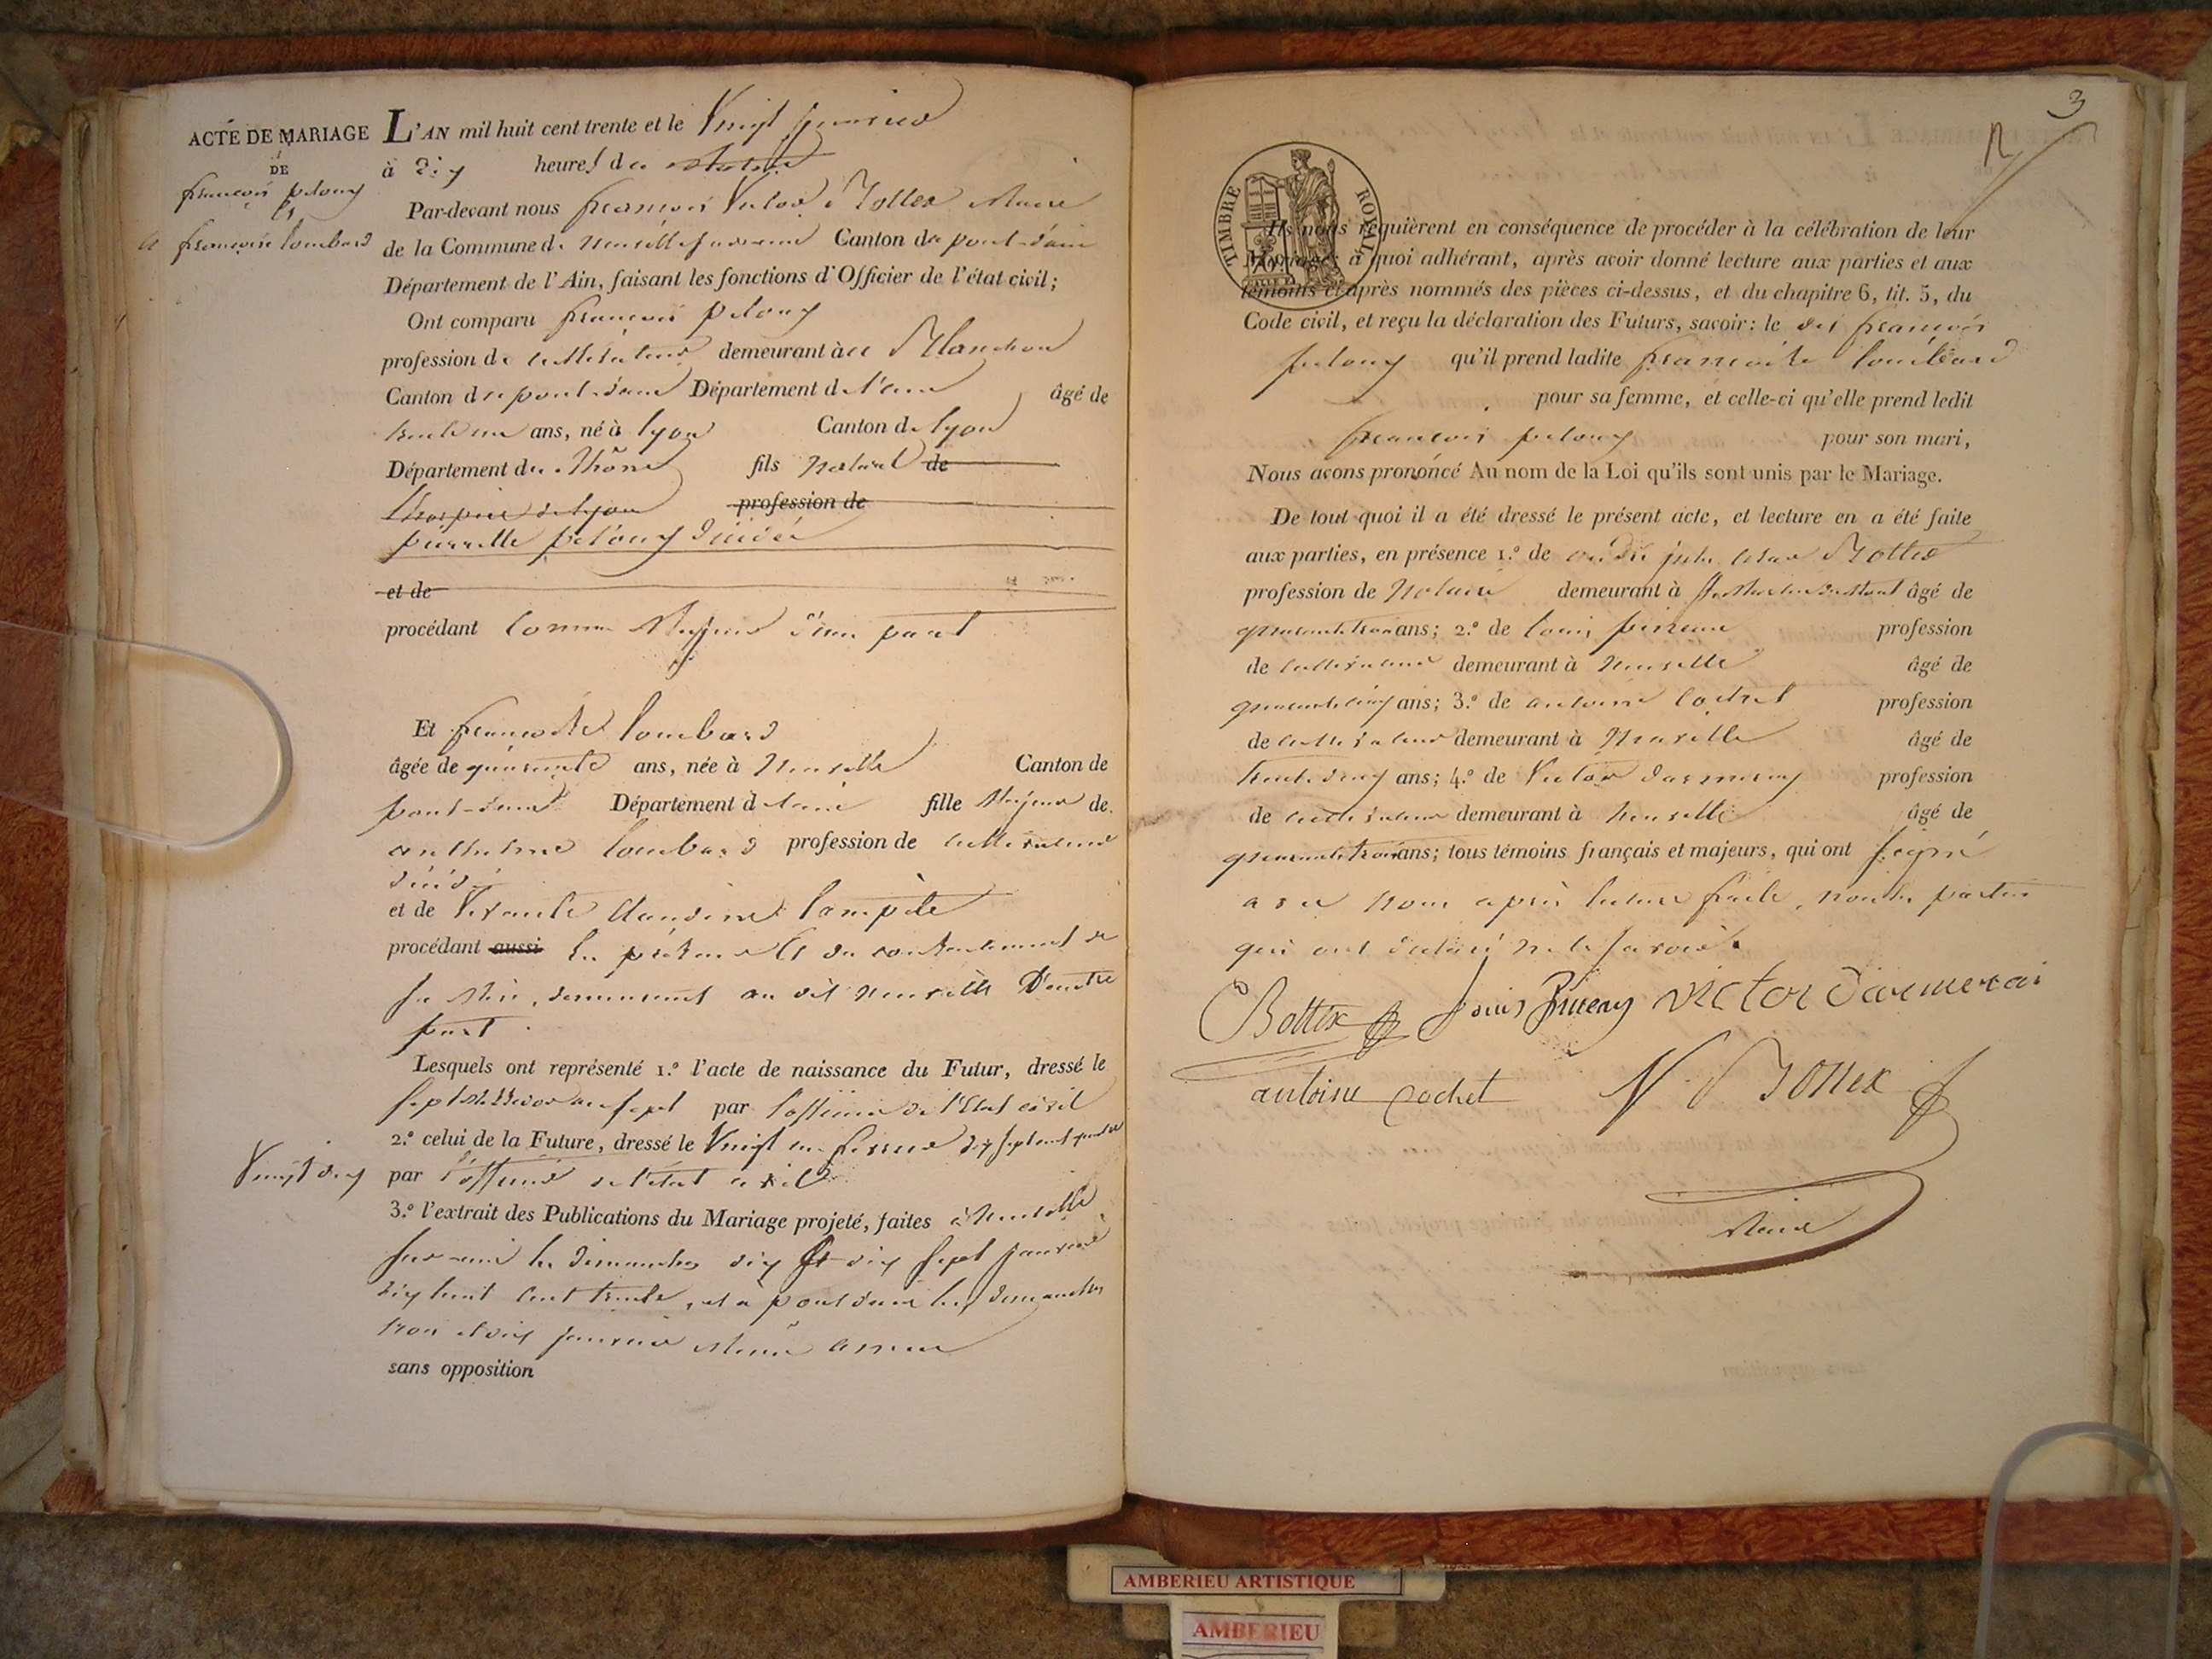 ACTE DE MARIAGE
DE
françois pelouy
et
françoise Lombard
L'AN mil huit cent trente et le Vingt janvier
à dix heures du matin
Par-devant nous françois Victor Bottex Maire
de la Commune de Neuville sur ain Canton de pont-d'ain
Département de l'Ain, faisant les fonctions d'Officier de l'état civil;
Ont comparu françois pelouy
profession de cultivateur demeurant à
Canton de pont-d'ain Département de l'ain âgé de
trente ans, né à Lyon Canton de Lyon
Département du Rhône fils Naturel de
profession de
pierrette pelouy décédée
et de
procédant comme Majeur d'une part
Et françoise Lombard
âgée de quarante ans, née à Neuville Canton de
pont-d'ain Département de l'ain fille Majeure de
anthelme Lombard profession de cultivateur
décédé
et de Vivante Claudine
procédant aussi En présence et du consentement de
sa Mère, demeurant au dit Neuville D'autre
part.
Lesquels ont représenté 1.º l'acte de naissance du Futur, dressé le
sept Messidor an sept par l'officier de l'Etat civil
2.º celui de la Future, dressé le Vingt
par l'officier de l'état civil
Vingt dix
3.º l'extrait des Publications du Mariage projeté, faites à Neuville
sur-ain les dimanches dix et dix sept janvier
dix huit cent trente, et à pont d'ain les dimanches
trois et dix janvier même année
sans opposition
3
TIMBRE ROYAL
Ils nous requièrent en conséquence de procéder à la célébration de leur
Mariage; à quoi adhérant, après avoir donné lecture aux parties et aux
témoins ci-après nommés des pièces ci-dessus, et du chapitre 6, tit. 5, du
Code civil, et reçu la déclaration des Futurs, savoir: le dit françois
pelouy qu'il prend ladite françoise Lombard
pour sa femme, et celle-ci qu'elle prend ledit
françois pelouy pour son mari,
Nous avons prononcé Au nom de la Loi qu'ils sont unis par le Mariage.
De tout quoi il a été dressé le présent acte, et lecture en a été faite
aux parties, en présence 1.º de Bottex
profession de Notaire demeurant à St Martin du Mont âgé de
quarante trois ans; 2.º de Louis profession
de cultivateur demeurant à Neuville âgé de
quarante cinq ans; 3.º de antoine Cochet profession
de cultivateur demeurant à Neuville âgé de
trente deux ans; 4.º de Victor profession
de cultivateur demeurant à Neuville âgé de
quarante trois ans; tous témoins français et majeurs, qui ont signé
avec Nous après lecture faite, non les parties
qui ont déclaré ne le savoir.
Bottex Louis victor Darmerai
antoine cochet V. Bottex
Maire
AMBERIEU ARTISTIQUE
AMBERIEU